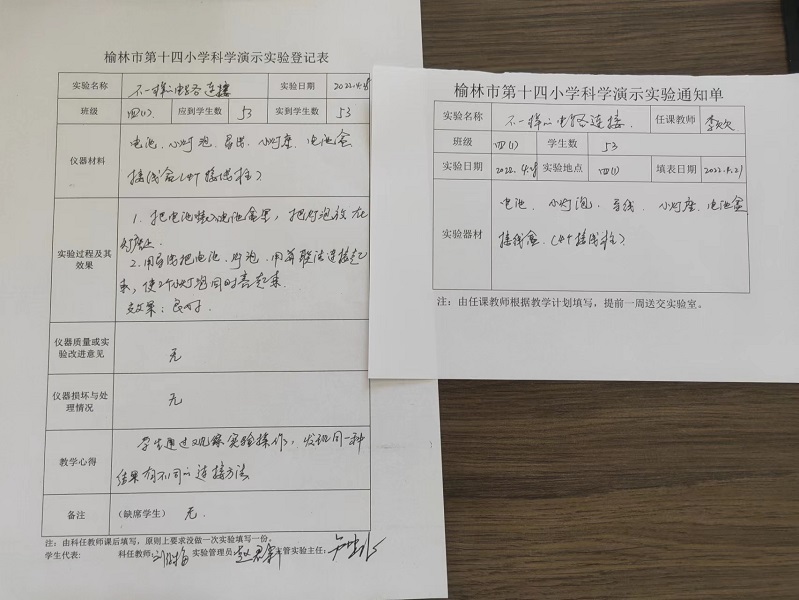 榆林市第十四小学科学演示实验登记表
实验名称 不一样的电路连接 实验日期 2022.4.28
班级 四(1) 应到学生数 53 实到学生数 53
仪器材料 电池、小灯泡、导线、小灯座、电池盒
接线盒(4个接线柱)
实验过程及其效果 1. 把电池装入电池盒里,把灯泡放在
灯座上
2. 用导线把电池、灯泡、用并联法连接起
来,使2个小灯泡同时亮起来.
效果:良好.
仪器质量或实验改进意见 无
仪器损坏与处理情况 无
教学心得 学生通过观察实验操作,发现同一种
结果有不同的连接方法
备注 (缺席学生) 无.
注:由科任教师课后填写,原则上要求没做一次实验填写一份。
学生代表: 科任教师: 实验管理员: 主管实验主任:
榆林市第十四小学科学演示实验通知单
实验名称 不一样的电路连接. 任课教师
班级 四(1) 学生数 53
实验日期 2022.4.28 实验地点 四(1) 填表日期 2022.4.21
实验器材 电池、小灯泡、导线、小灯座、电池盒
接线盒.(4个接线柱)
注:由任课教师根据教学计划填写,提前一周送交实验室。